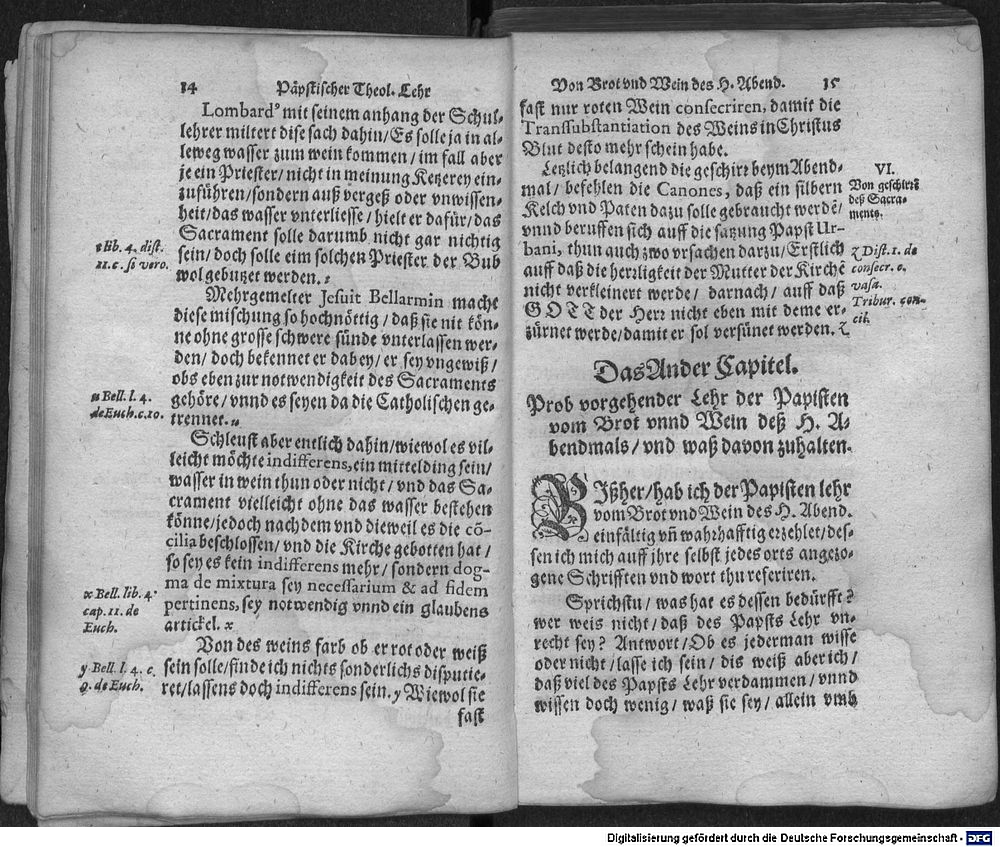 14 Päpstischer Theol. Lehr
Lombardꝰ mit seinem anhang der Schul-
lehrer miltert dise sach dahin/Es solle ja in al-
leweg wasser zum wein kommen/im fall aber
je ein Priester/nicht in meinung Ketzerey ein-
zuführen/sondern auß vergeß oder vnwissen-
heit/das wasser vnterliesse/hielt er dafür/das
Sacrament solle darumb nicht gar nichtig
sein/doch solle eim solchen Priester der Bub
wol gebutzet werden. t
t lib. 4. dist.
11. c. si vero.
Mehrgemelter Jesuit Bellarmin macht
diese mischung so hochnöttig/daß sie nit kön-
ne ohne grosse schwere sünde vnterlassen wer-
den/doch bekennet er dabey/er sey vngewiß/
obs eben zur notwendigkeit des Sacraments
gehöre/vnnd es seyen da die Catholischen ge-
trennet. u
u Bell. l. 4.
de Euch. c. 10.
Schleust aber entlich dahin/wiewol es vil-
leicht möchte indifferens, ein mittelding sein/
wasser in wein thun oder nicht/vnd das Sa-
crament vielleicht ohne das wasser bestehen
könne/jedoch nach dem vnd dieweil es die cō-
cilia beschlossen/vnd die Kirche gebotten hat/
so sey es kein indifferens mehr/sondern dog-
ma de mixtura sey necessarium & ad fidem
pertinens, sey notwendig vnnd ein glaubens
artickel. x
x Bell. lib. 4.
cap. 11. de
Euch.
Von des weins farb ob er rot oder weiß
sein solle/finde ich nichts sonderlichs disputie-
ret/lassens doch indifferens sein. y Wiewol sie
y Bell. l. 4. c.
9. de Euch.
fast
Von Brot vnd Wein des H. Abend. 15
fast nur roten Wein consecriren, damit die
Transsubstantiation des Weins in Christus
Blut desto mehr schein habe.
Letzlich belangend die geschirr beym Abend-
mal/befehlen die Canones, daß ein silbern
Kelch vnd Paten dazu solle gebraucht werdē/
vnnd beruffen sich auff die satzung Papst Ur-
bani, thun auch zwo vrsachen darzu/Erstlich
auff daß die herzligkeit der Mutter der Kirchē
nicht verkleinert werde/darnach/auff daß
GOTT der Herr nicht eben mit deme er-
zürnet werde/damit er sol versünet werden. z
VI.
Von geschirrē
deß Sacra-
ments.
z Dist. 1. de
consecr. c.
vasa.
Tribur. con-
cil.
Das Ander Capitel.
Prob vorgehender Lehr der Papisten
vom Brot vnnd Wein deß H. A-
bendmals/vnd waß davon zuhalten.
Bißher/hab ich der Papisten lehr
vom Brot vnd Wein des H. Abend.
einfältig vñ wahrhafftig erzehlet/des-
sen ich mich auff ihre selbst jedes orts angezo-
gene Schrifften vnd wort thu referiren.
Sprichstu/was hat es dessen bedürfft?
wer weis nicht/daß des Papsts Lehr vn-
recht sey? Antwort/Ob es jederman wisse
oder nicht/lasse ich sein/dis weiß aber ich/
daß viel des Papsts Lehr verdammen/vnnd
wissen doch wenig/waß sie sey/allein vmb
Digitalisierung gefördert durch die Deutsche Forschungsgemeinschaft - DFG